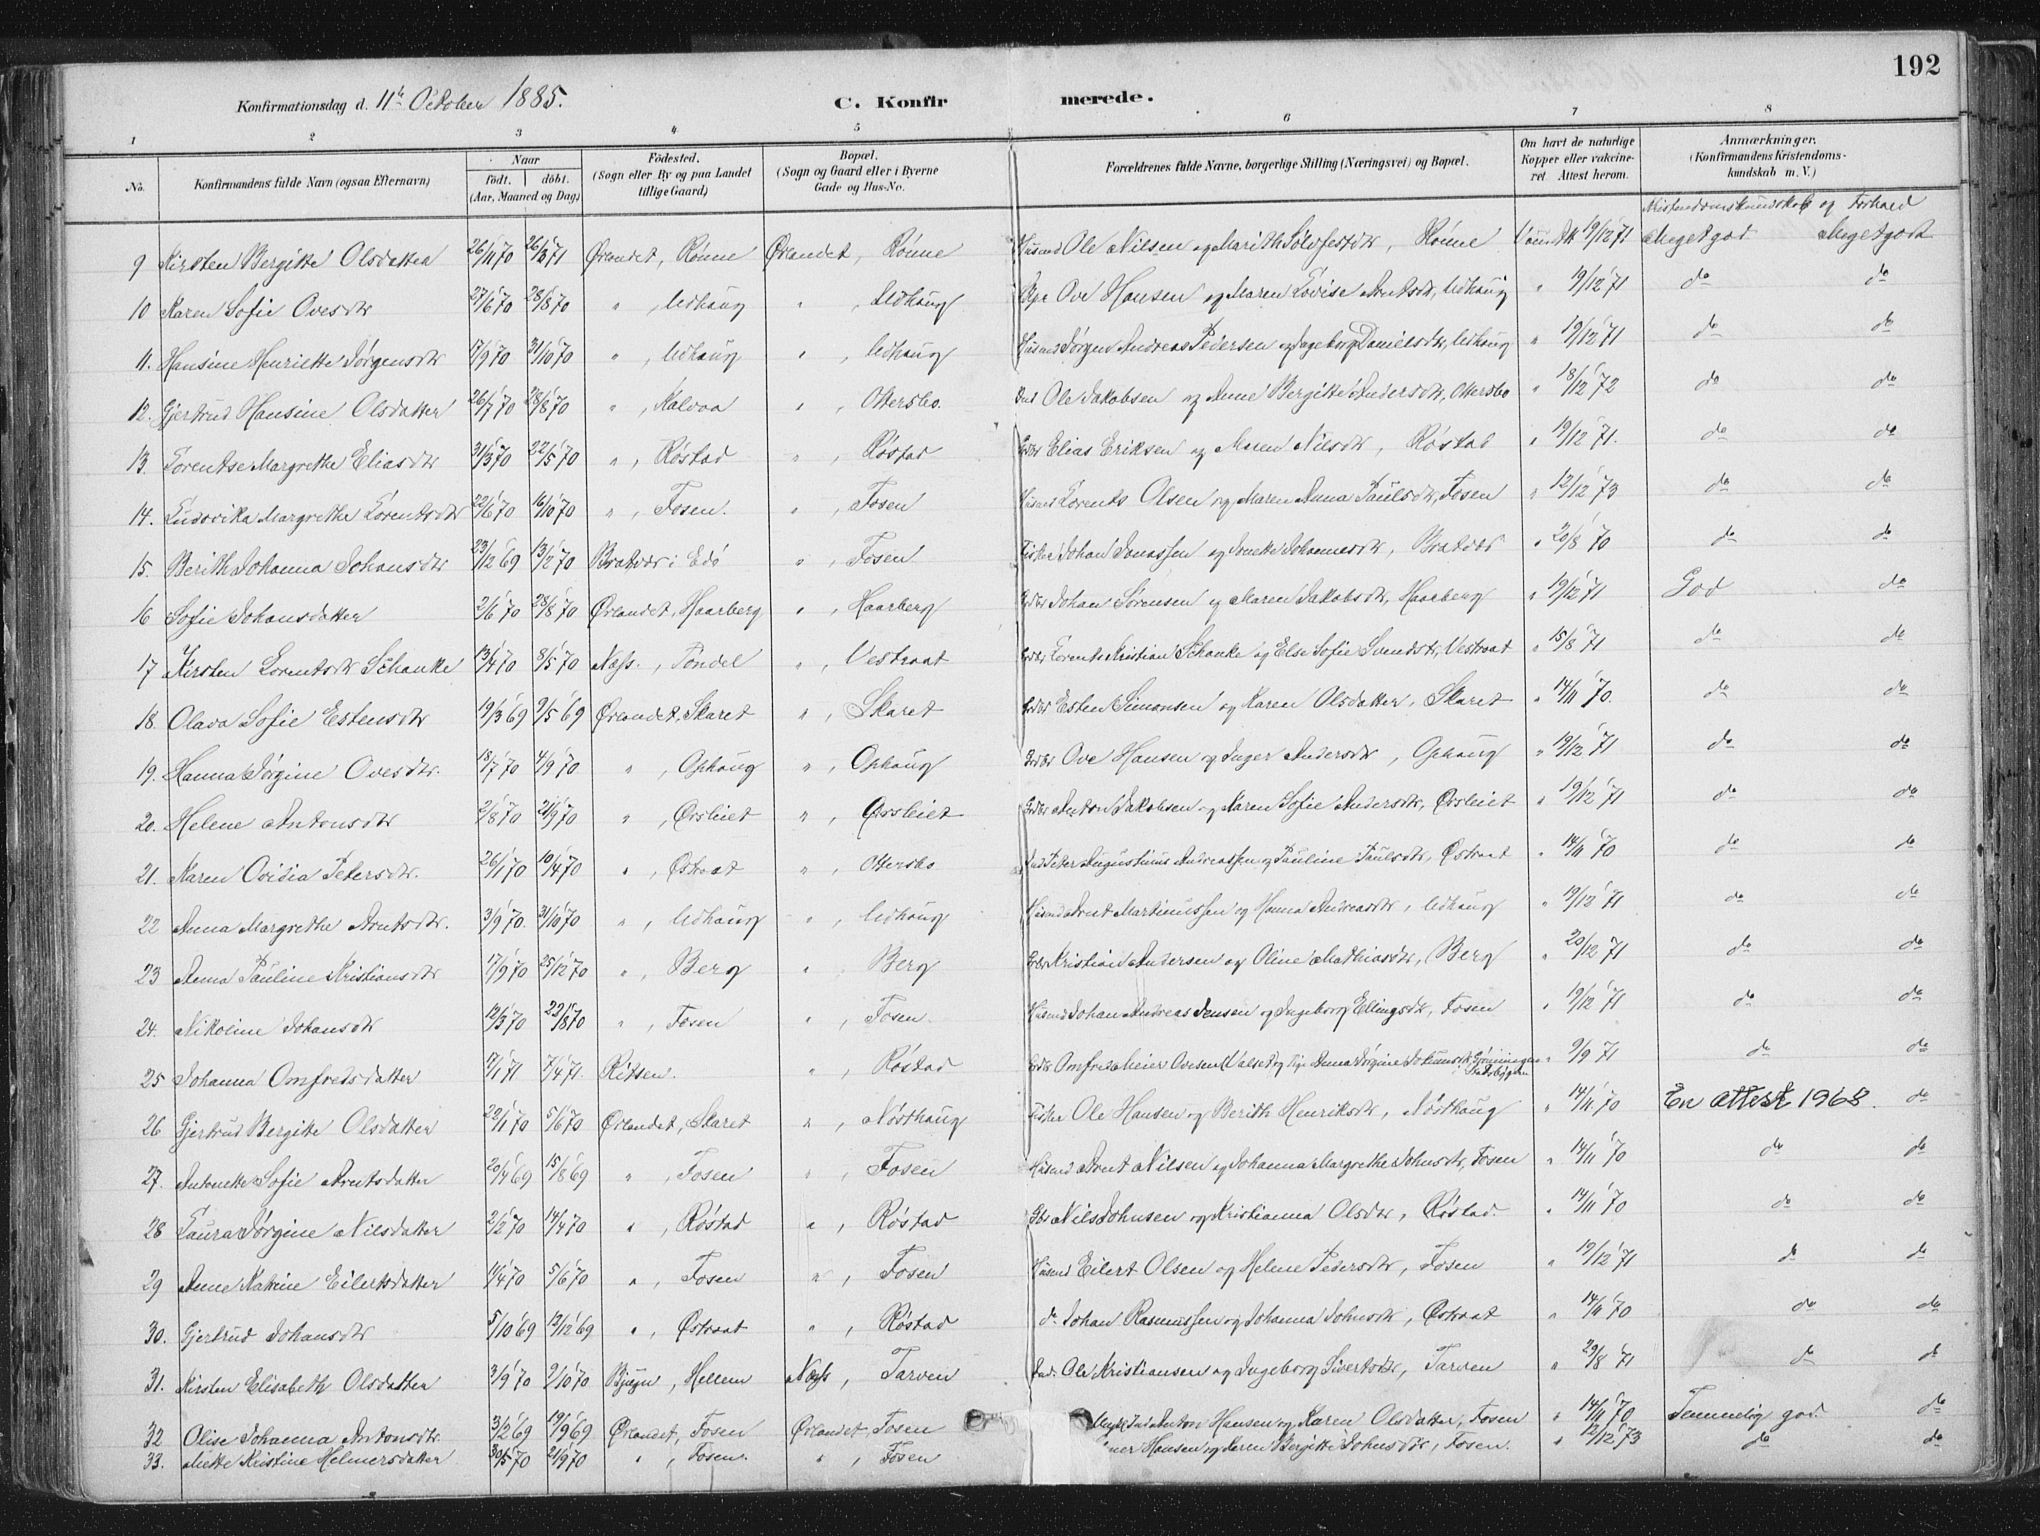 192
Konfirmationsdag d. 11te October 1885. C. Konfirmerede.
1 2 3 4 5 6 7 8
No. Konfirmandens fulde Navn (ogsaa Efternavn) Naar födt. döbt. (Aar, Maaned og Dag) Födested. (Sogn eller By og paa Landet tillige Gaard) Bopæl. (Sogn og Gaard eller i Byerne Gade og Hus-No. Forældrenes fulde Navne, borgerlige Stilling (Næringsvei) og Bopæl. Om havt de naturlige Kopper eller vakcineret. Attest herom. Anmærkninger. (Konfirmandens Kristendomskundskab m. V.)
Kristendomskundskab og Forhold
9 Kirsten Bergitte Olsdatter 26/11 70 26/3 71 Ørlandet, Rønne Ørlandet, Rønne Husmd Ole Nilsen og Marith Sølvfestdtr, Rønne 19/12 71 Meget god Meget godt
10 Karen Sofie Ovesdtr 27/6 70 28/8 70 " , Udhaug " , Udhaug Ove Hansen og Maren Lovise Arntsdtr, Udhaug " 19/12 71 do do
11. Hansine Henriette Jørgensdtr 17/9 70 31/10 70 " , Udhaug " , Udhaug Husmd Jørgen Andreas Pedersen og Ingeborg Danielsdtr, Udhaug " 19/12 71 do do
12. Gjertrud Hansine Olsdatter 26/7 70 28/8 70 " , Kalvaa " , Ottersbo. Ind Ole Jakobsen og Anne Bergitte Andersdtr, Ottersbo " 18/12 72 do do
13. Lorentse Margrethe Eliasdtr 31/3 70 22/5 70 " , Røstad " , Røstad Gdbr Elias Eriksen og Maren Nilsdtr, Røstad " 19/12 71. do do
14. Ludovika Margrethe Lorentsdtr 22/6 70 16/10 70 " , Fosen. " , Fosen Husmd Lorents Olsen og Maren Anna Paulsdtr, Fosen " 12/12 73 do do
15. Berith Johanna Johansdtr 23/12 69 13/2 70 Bratvær i Edø " , Fosen Fisker Johan Jonassen og Johannesdtr, Bratvær " 20/8 70 do do
16 Sofie Johansdatter 2/6 70 28/8 70 Ørlandet, Haarberg " , Haarberg Gdbr Johan Sørensen og Maren Jakobsdtr, Haarberg " 19/12 71 God do
17 Kirsten Lorentsdtr Schanke 13/4 70 8/5 70 Næss., Tøndel " , Vestraat Gdbr Lorents Kristian Schanke og Else Sofie Svendsdtr, Vestraat " 15/8 71 do do
18. Olava Sofie Estensdtr 19/3 69 9/5 69 Ørlandet, Skaret " , Skaret Gdbr Esten Simonsen og Karen Olsdatter, Skaret " 14/11 70. do do
19. Hanna Jørgine Ovesdtr. 18/7 70 4/9 70 " , Ophaug " , Ophaug Gdbr Ove Hansen og Inger Andersdtr, Ophaug " 19/12 71 do do
20. Helene Antonsdtr 2/8 70 21/9 70 " , Ørsleiet " , Ørsleiet Gdbr Anton Jakobsen og Karen Sofie Andersdtr, Ørsleiet " 19/12 71 do do
21. Karen Ovidia Petersdtr. 26/1 70 10/4 70 " , Østraat " , Ottersbo Ind Petter Augustinus Andreassen og Pauline Paulsdtr, Østraat " 14/11 70 do do
22 Anna Margrethe Arntsdtr. 3/9 70. 31/10 70 " , Udhaug " , Udhaug Husmd Arnt Martinussen og Hanna Andreasdtr, Udhaug " 19/12 71 do do
23 Anna Pauline Kristiansdtr 17/9 70 25/12 70 " , Berg " , Berg Gdbr Kristian Andersen og Oline Mathiasdtr, Berg " 20/12 71 do do
24. Nikoline Johansdtr 12/3 70 22/8 70 " , Fosen " , Fosen. Husmd Johan Andreas Jensen og Ingeborg Ellingsdtr, Fosen " 19/12 71 do do
25 Johanna Omfredsdatter 17/1 71 7/4 71. Ritsen. " , Røstad Gdbr Omfred Meier Ovesen (Valset og Pige Anna Jørgine Grønningen Stadsbygden " 9/9 71 do do
26 Gjertrud Bergitte Olsdatter 22/1 70 5/6 70 Ørlandet, Skaret " , Nøsthaug Fisker Ole Hansen og Berith Henriksdtr, Nøsthaug " 14/11 70 En attest 1968. do
27. Antonette Sofie Arntsdatter 20/4 69 15/8 69 " , Fosen " , Fosen Husmd Arnt Nilsen og Johanna Margrethe Johnsdtr, Fosen " 14/11 70 do do
28 Laura Jørgine Nilsdatter 2/2 70 14/4 70 " , Røstad " , Røstad Gbr Nils Johnsen og Kristianna Olsdtr, Røstad. " 14/11 70 do do
29 Anne Katrine Eilertsdatter 11/4 70 5/6 70 " , Fosen " , Fosen Husmd Eilert Olsen og Helene Pedersdtr, Fosen " 19/12 71 do do
30. Gjertrud Johansdtr 5/10 69 12/12 69 " , Østraat " , Røstad do Johan Rasmussen og Johanna Johnsdtr, Østraat " 14/11 70 do do
31. Kirsten Elisabeth Olsdatter 3/9 70 2/10 70 Bjugn, Hellem Næss, Tarven Ind. Ole Kristiansen og Ingeborg Sivertsdtr, Tarven " 29/8 71 do do
32 Olise Johanna Antonsdtr 3/2 69 19/9 69 Ørlandet, Fosen Ørlandet, Fosen Ind Anton Hansen og Karen Olsdatter, Fosen " 14/11 70 Temmelig god do
33. Mette Kristine Helmersdatter 30/5 70 21/9 70 " , Fosen. " , Fosen Hansen og Karen Bergitte Johnsdtr, Fosen. " 12/12 73 do do